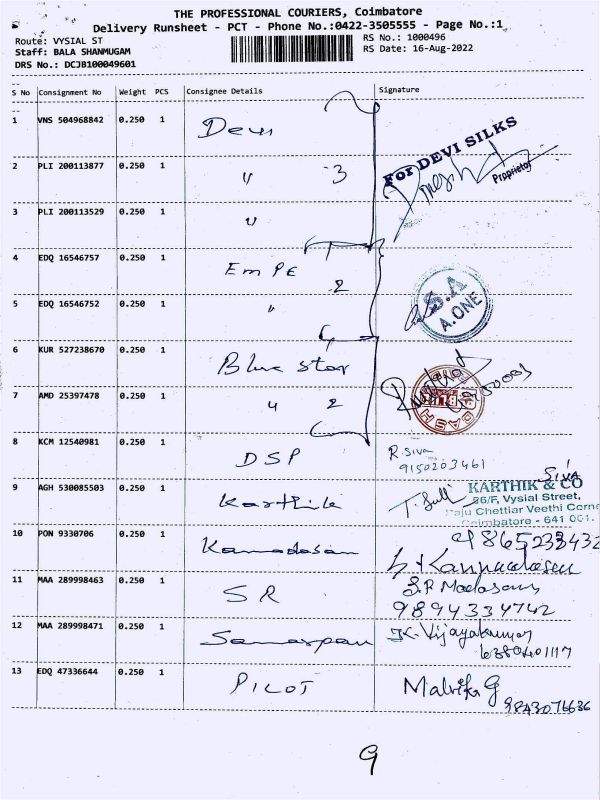 THE PROFESSIONAL COURIERS, Coimbatore
Delivery Runsheet - PCT - Phone No.:0422-3505555 - Page No.:1
Route: VYSIAL ST RS No.: 1000496
Staff: BALA SHANMUGAM RS Date: 16-Aug-2022
DRS No.: DCJB100049601
S No Consignment No Weight PCS Consignee Details Signature
1 VNS 504968842 0.250 1 Devi
For DEVI SILKS
Proprietor
2 PLI 200113877 0.250 1 " 3
3 PLI 200113529 0.250 1 "
4 EDQ 16546757 0.250 1 EMPE 2
S.A
A.ONE
5 EDQ 16546752 0.250 1 "
6 KUR 527238670 0.250 1 Blue star
7 AMD 25397478 0.250 1 " 2
8 KCM 12540981 0.250 1 DSP R. Siva
9150203461
9 AGH 530085503 0.250 1 Karthik SIVA
KARTHIK & CO
86/F, Vysial Street,
Raju Chettiar Veethi Corne
Coimbatore - 641 001.
10 PON 9330706 0.250 1 Kannadasan 9865233432
Kannadasan
11 MAA 289998463 0.250 1 SR S.P Madasamy
9894334742
12 MAA 289998471 0.250 1 Samarpan K. Vijayakumar
6380401117
13 EDQ 47336644 0.250 1 PILOT Malvika G
9843076636
9